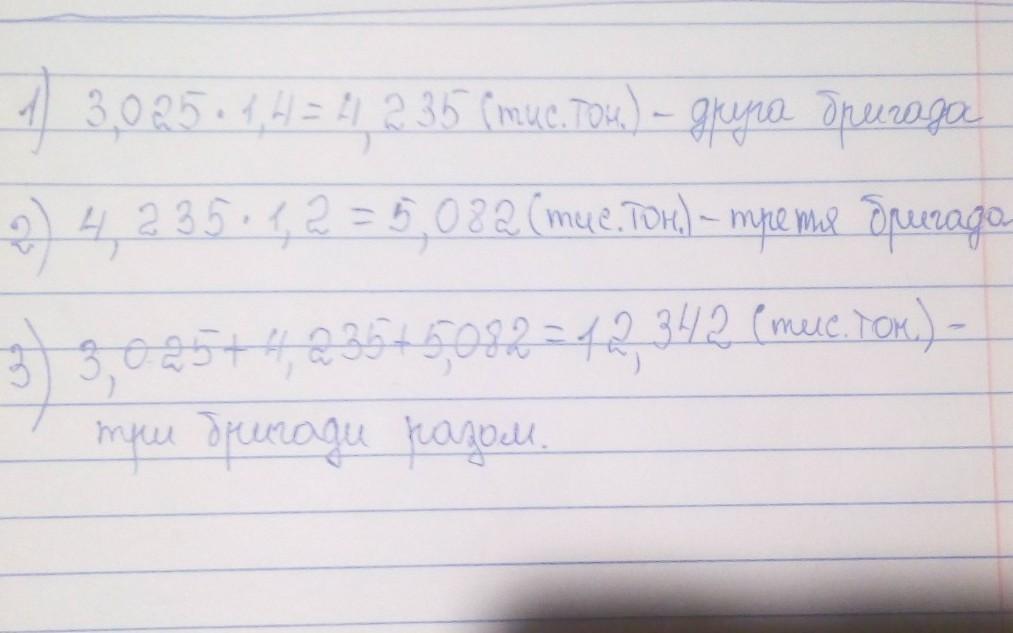 1) 3,025 · 1,4 = 4,235 (тис.тон.) – друга бригада
2) 4,235 · 1,2 = 5,082 (тис.тон.) – третя бригада
3) 3,025 + 4,235 + 5,082 = 12,342 (тис.тон.) –
три бригади разом.